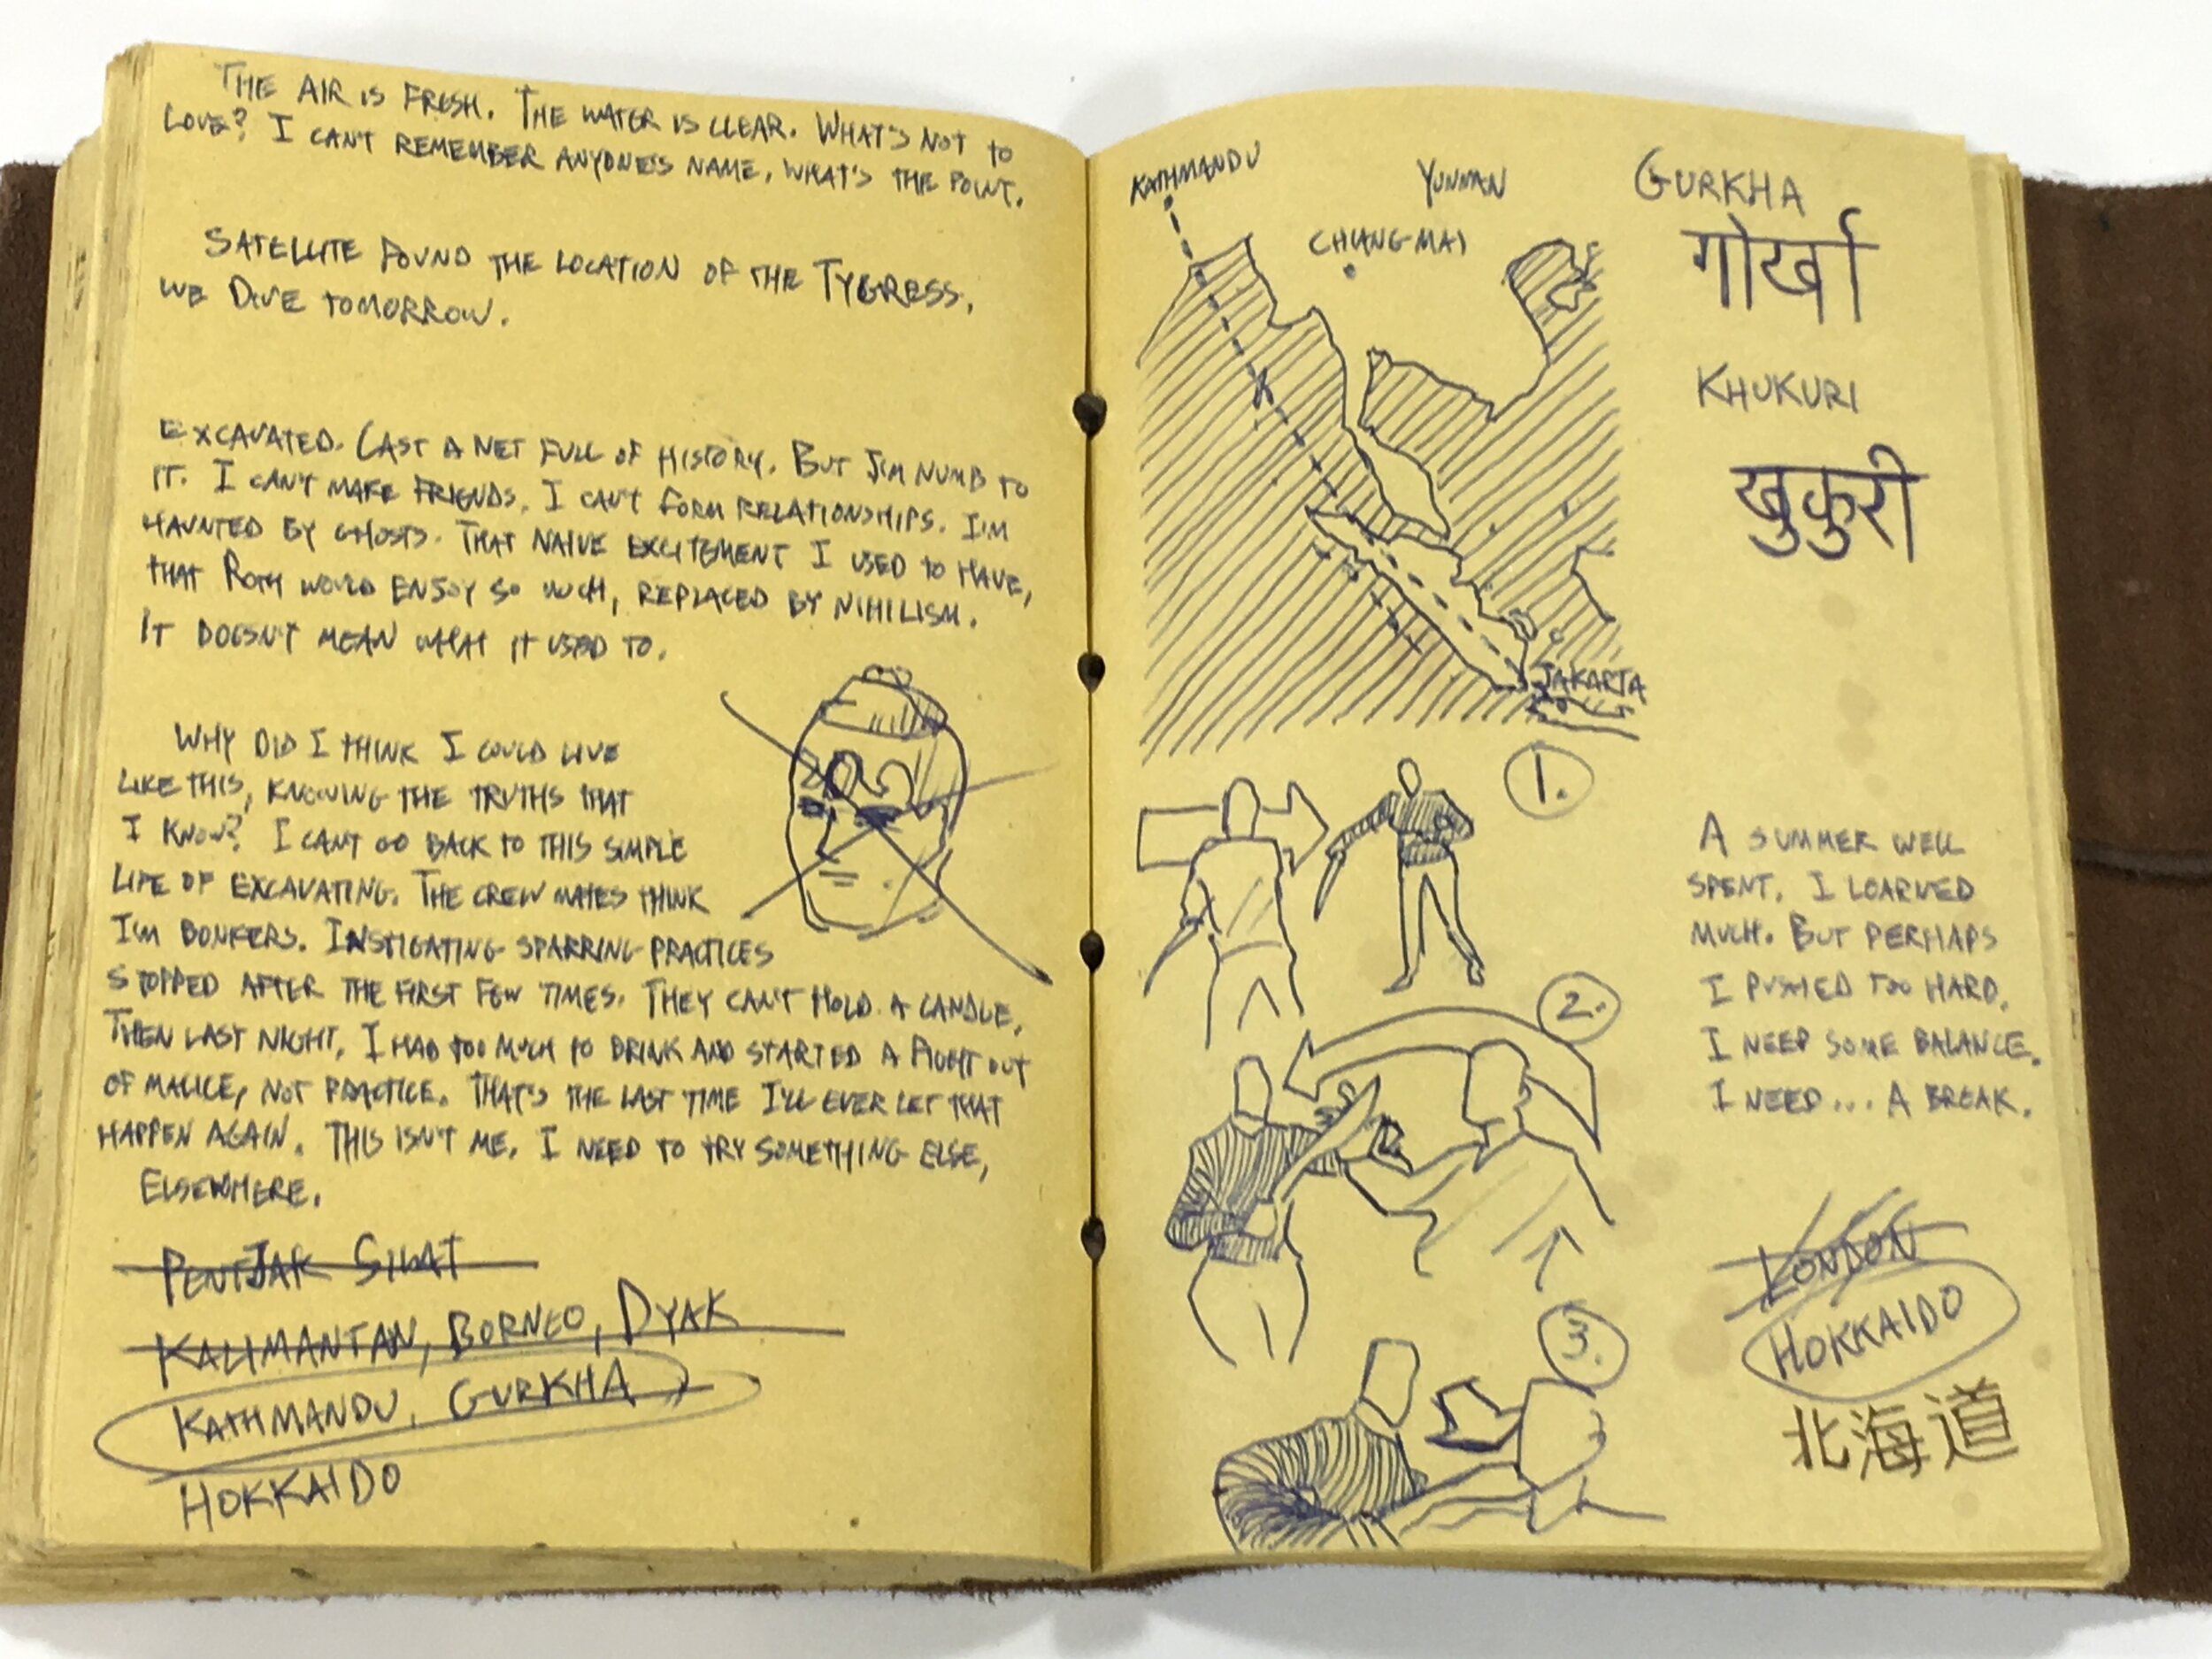 THE AIR IS FRESH. THE WATER IS CLEAR. WHAT'S NOT TO
LOVE? I CAN'T REMEMBER ANYONE'S NAME, WHAT'S THE POINT.
SATELLITE FOUND THE LOCATION OF THE TYGRESS,
WE DIVE TOMORROW.
EXCAVATED. CAST A NET FULL OF HISTORY. BUT I'M NUMB TO
IT. I CAN'T MAKE FRIENDS. I CAN'T FORM RELATIONSHIPS. I'M
HAUNTED BY GHOSTS. THAT NAIVE EXCITEMENT I USED TO HAVE,
THAT ROTH WOULD ENJOY SO MUCH, REPLACED BY NIHILISM.
IT DOESN'T MEAN WHAT IT USED TO.
WHY DID I THINK I COULD LIVE
LIKE THIS, KNOWING THE TRUTHS THAT
I KNOW? I CAN'T GO BACK TO THIS SIMPLE
LIFE OF EXCAVATING. THE CREW MATES THINK
I'M BONKERS. INSTIGATING SPARRING PRACTICES
STOPPED AFTER THE FIRST FEW TIMES. THEY CAN'T HOLD A CANDLE.
THEN LAST NIGHT, I HAD TOO MUCH TO DRINK AND STARTED A FIGHT OUT
OF MALICE, NOT PRACTICE. THAT'S THE LAST TIME I'LL EVER LET THAT
HAPPEN AGAIN. THIS ISN'T ME. I NEED TO TRY SOMETHING ELSE,
ELSEWHERE.
PENTJAK SILAT
KALIMANTAN, BORNEO, DYAK
KATHMANDU, GURKHA
HOKKAIDO
KATHMANDU
YUNNAN
CHIANG-MAI
JAKARTA
GURKHA
गोर्खा
KHUKURI
खुकुरी
1.
2.
3.
A SUMMER WELL
SPENT. I LEARNED
MUCH. BUT PERHAPS
I PUSHED TOO HARD.
I NEED SOME BALANCE.
I NEED... A BREAK.
LONDON
HOKKAIDO
北海道